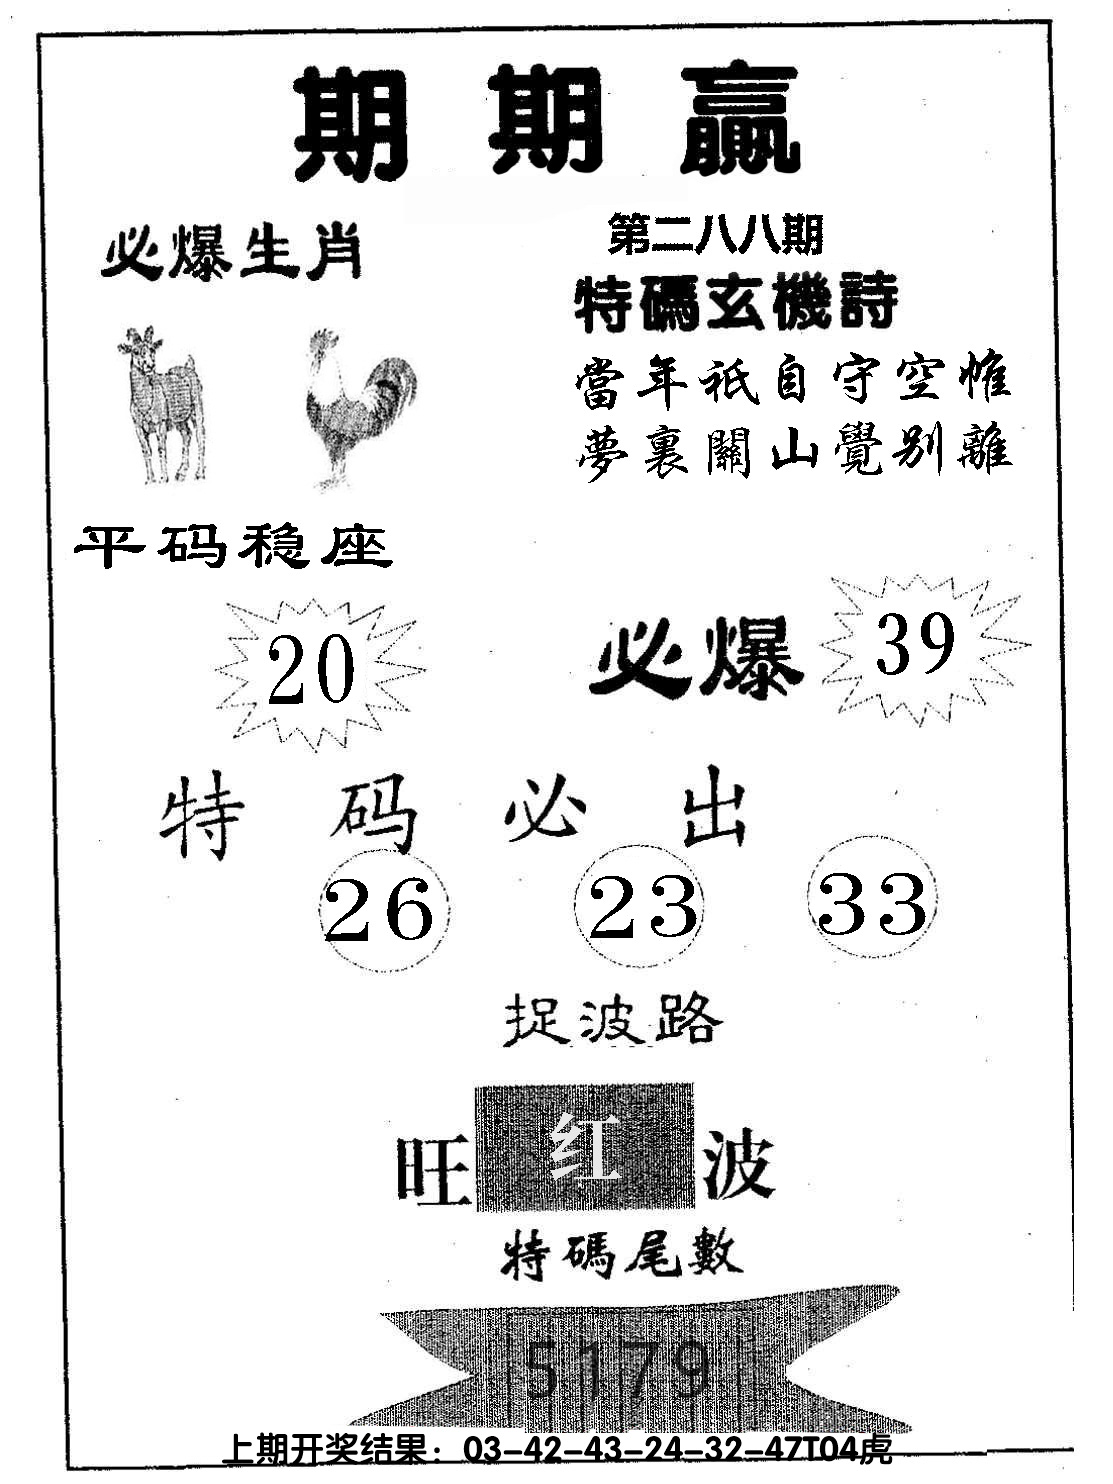 期期贏
必爆生肖
第二八八期
特碼玄機詩
當年祇自守空帷
夢裏關山覺别離
平码稳座
20
必爆 39
特码必出
26 23 33
捉波路
旺 红 波
特碼尾數
5179
上期开奖结果：03-42-43-24-32-47T04虎